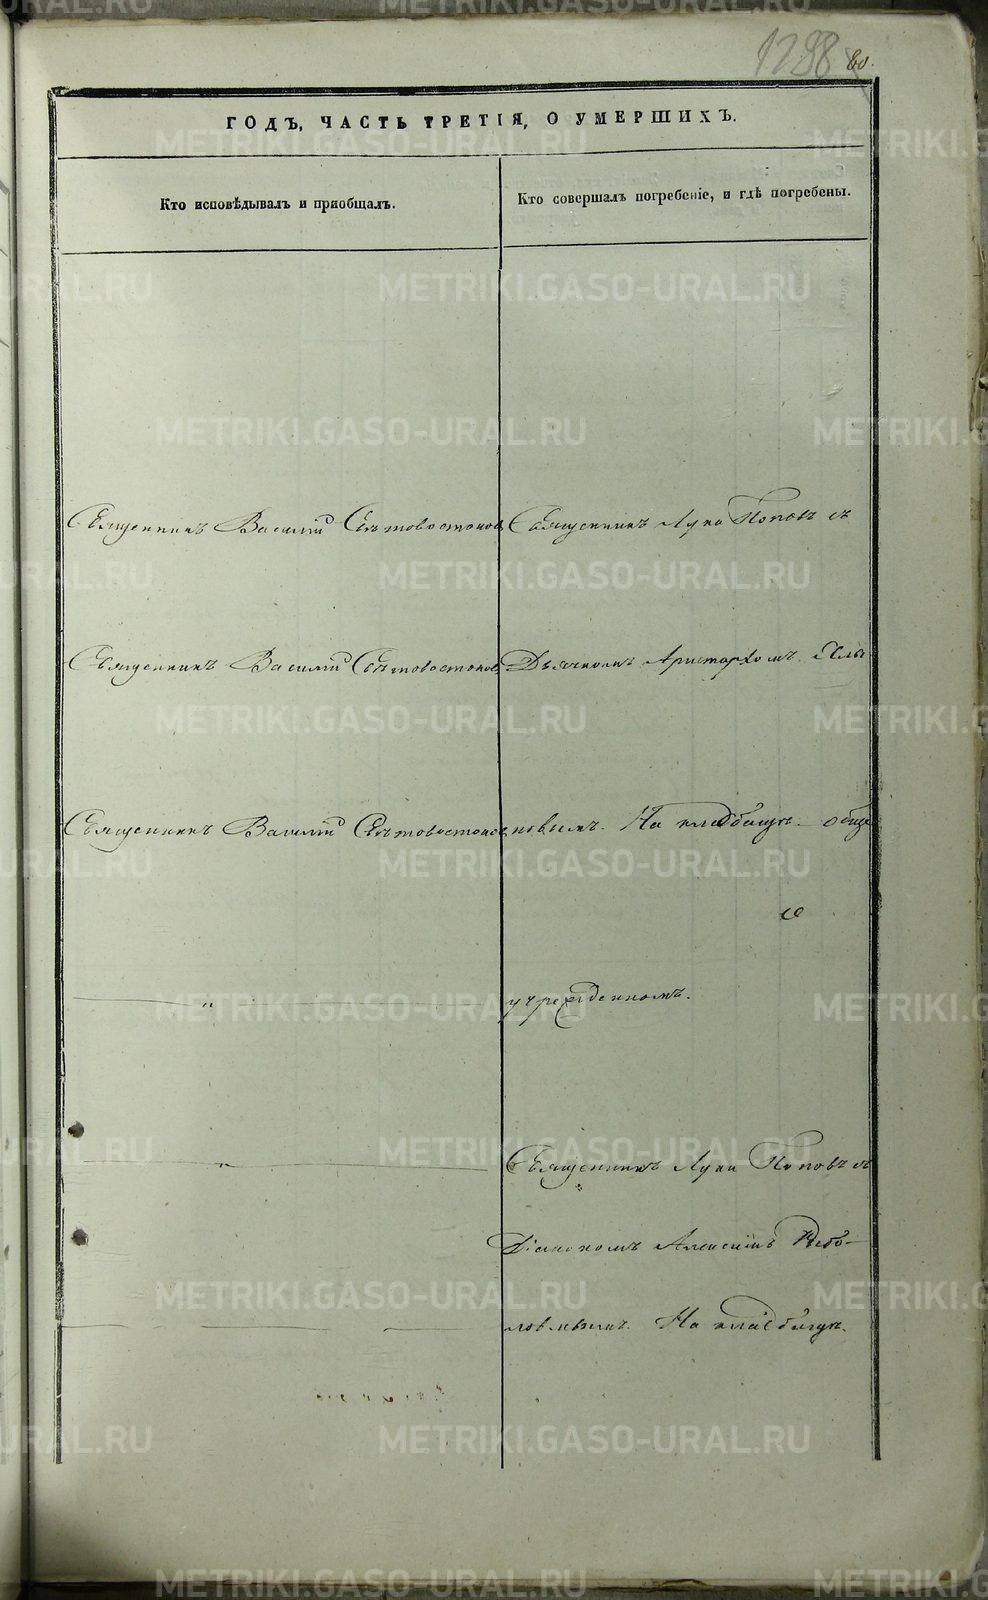 1288
60.
ГОДЪ, ЧАСТЬ ТРЕТІЯ, О УМЕРШИХЪ.
Кто исповѣдывалъ и пріобщалъ.
Кто совершалъ погребеніе, и гдѣ погребены.
Священникъ Василій Свѣтовостоковъ
Священникъ Лука Поповъ съ
Священникъ Василій Свѣтовостоковъ
Дьячкомъ Аристархомъ
Священникъ Василій Свѣтовостоковъ
новымъ. На кладбищѣ обще
учрежденномъ.
Священникъ Лука Поповъ съ
Діакономъ Алексіемъ Рыбо-
ловлевымъ. На кладбищѣ.
METRIKI.GASO-URAL.RU